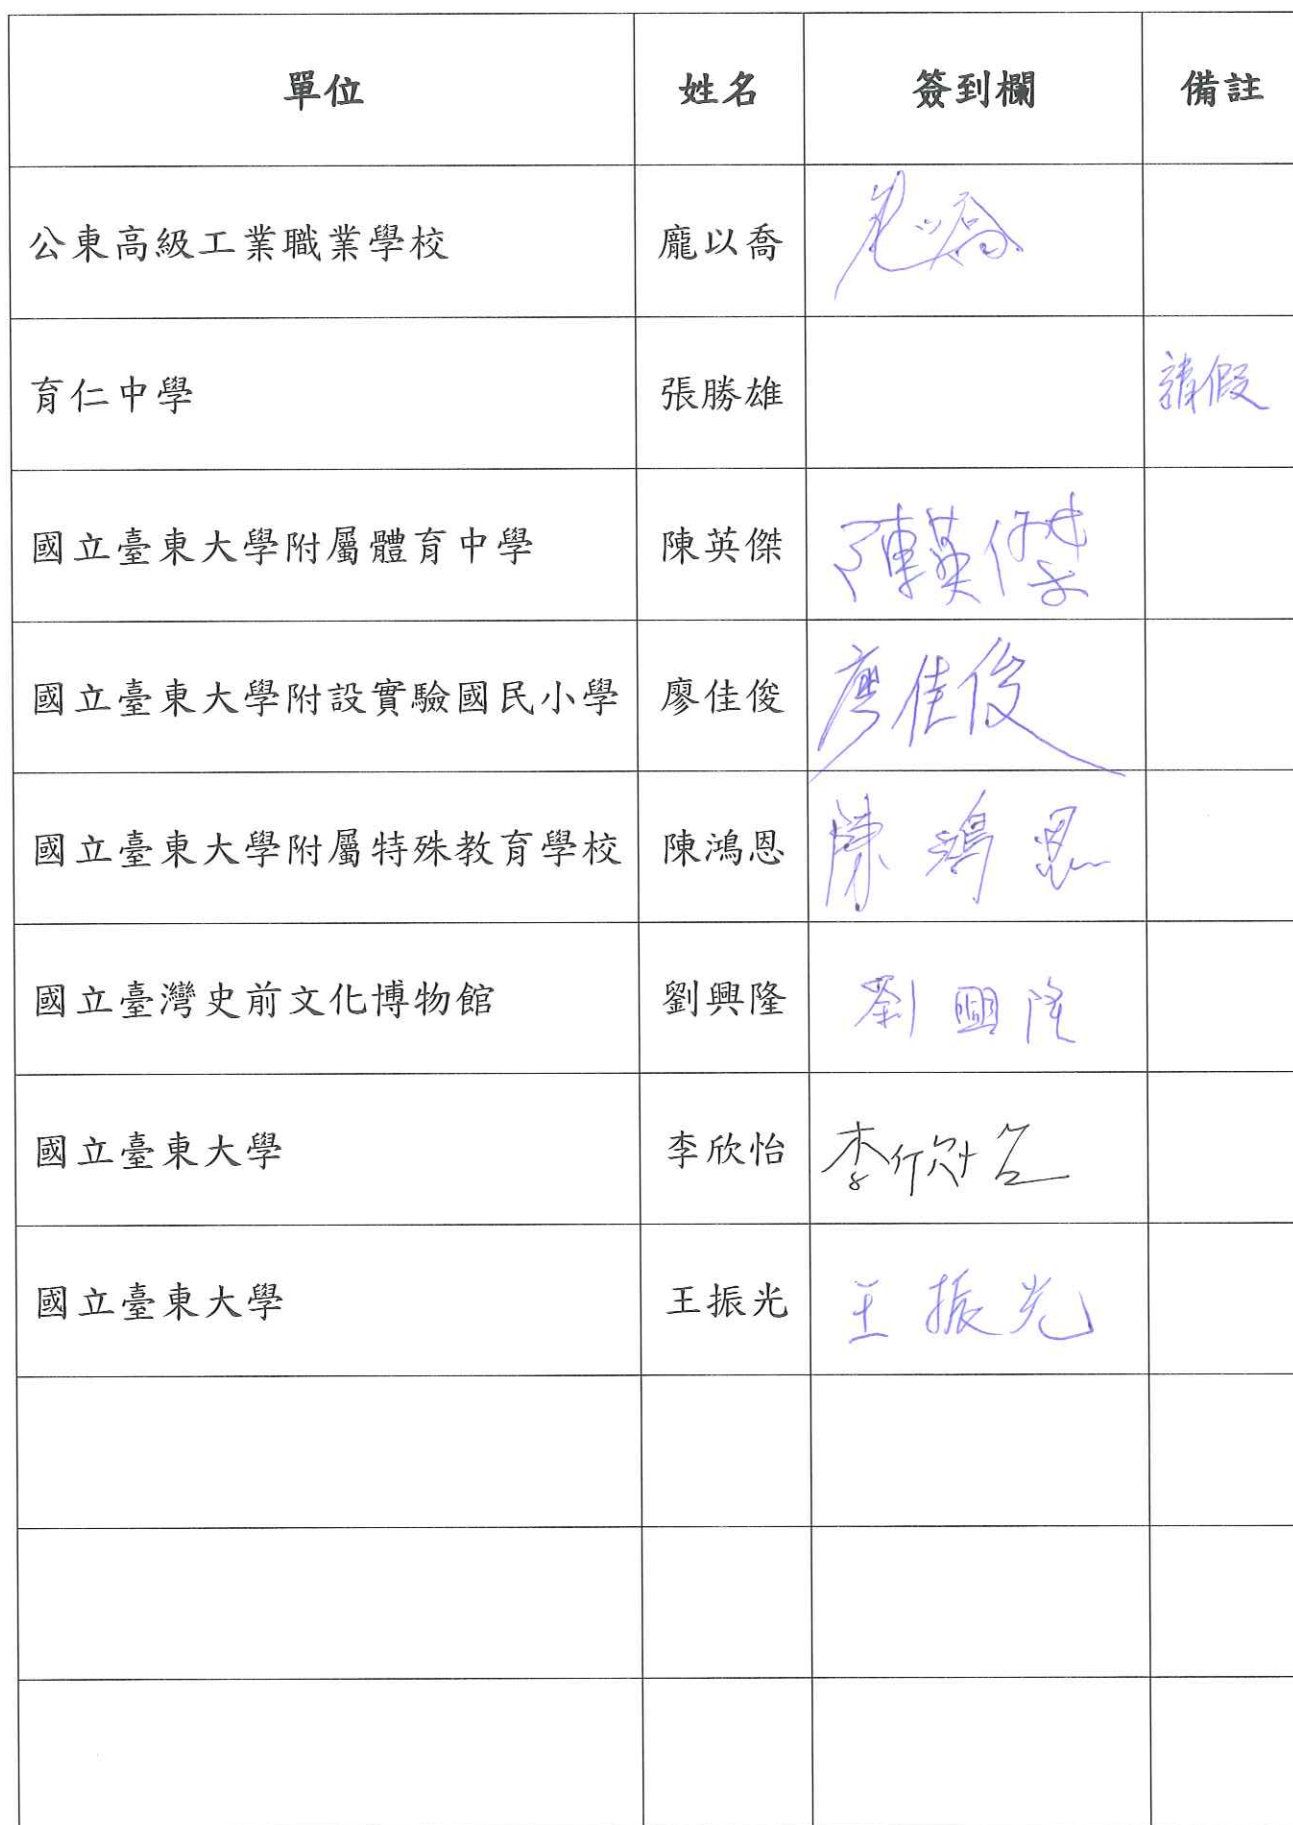 單位 姓名 簽到欄 備註
公東高級工業職業學校 龐以喬
育仁中學 張勝雄 請假
國立臺東大學附屬體育中學 陳英傑 陳英傑
國立臺東大學附設實驗國民小學 廖佳俊 廖佳俊
國立臺東大學附屬特殊教育學校 陳鴻恩 陳鴻恩
國立臺灣史前文化博物館 劉興隆 劉興隆
國立臺東大學 李欣怡 李欣怡
國立臺東大學 王振光 王振光